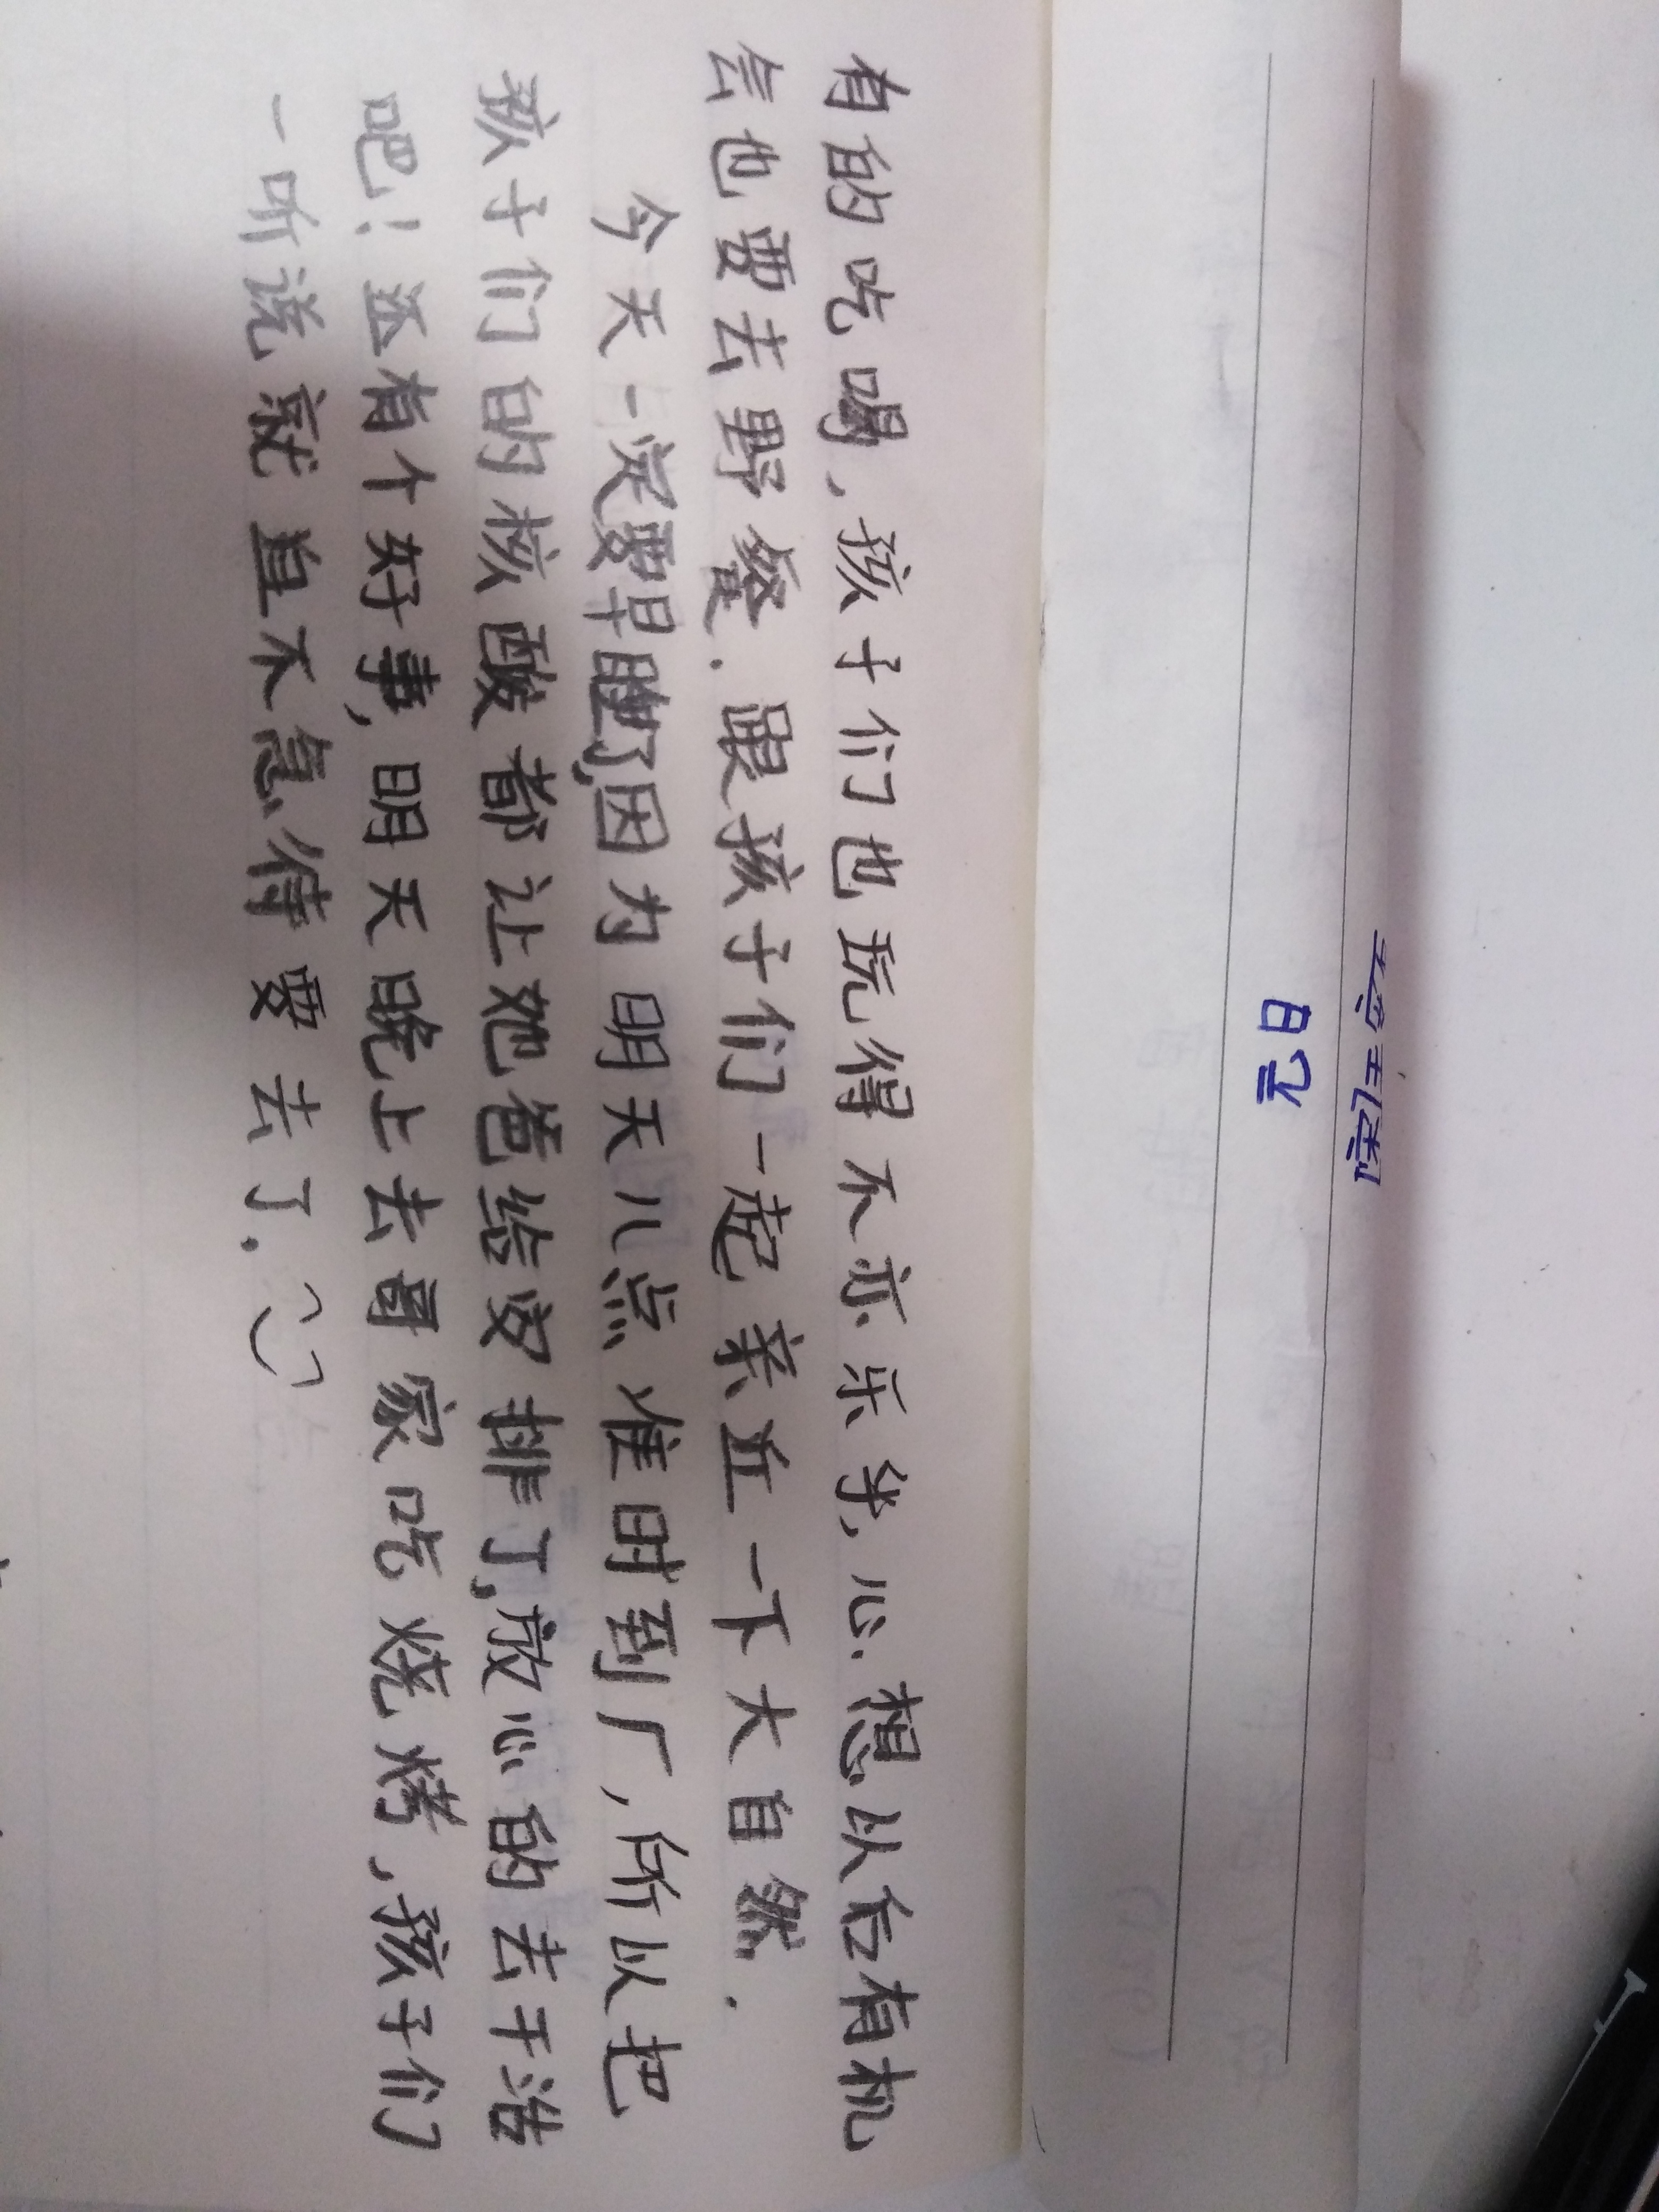 日元
有的吃喝，孩子们也玩得不亦乐乎，心想以后有机
会也要去野餐．跟孩子们一起亲近一下大自然．
今天一定要早睡了，因为明天八点准时到厂，所以把
孩子们的核酸都让她爸给安排了，放心的去干活
吧！还有个好事，明天晚上去哥家吃烧烤，孩子们
一听说就直不急待要去了．